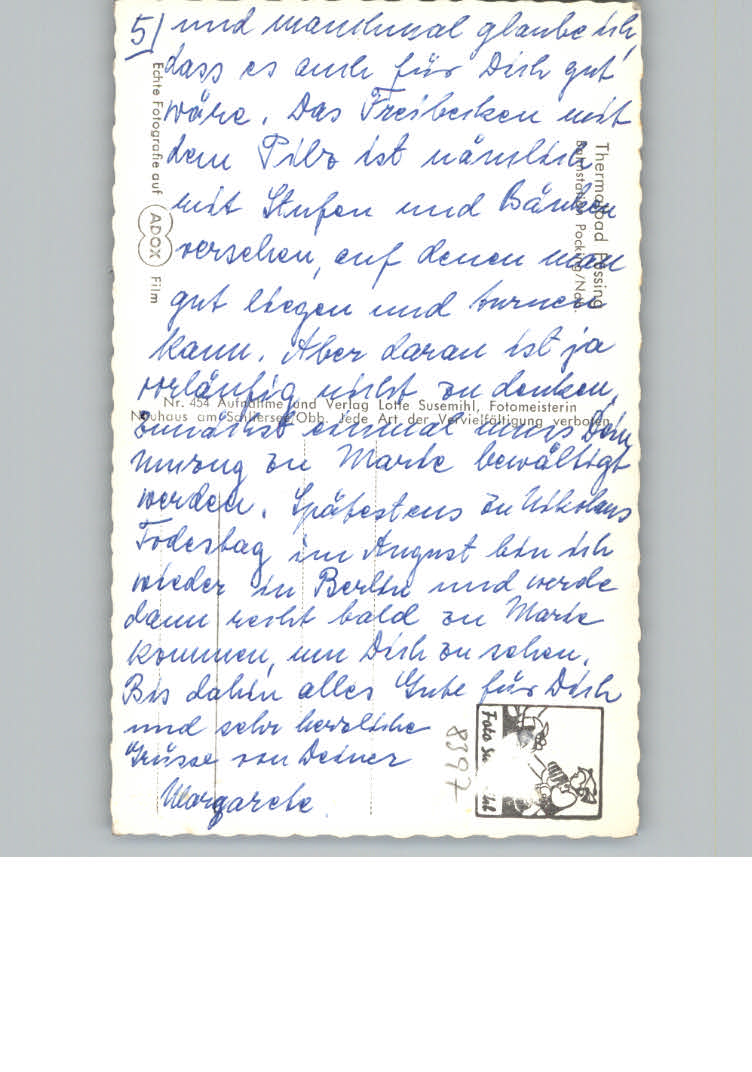 5) und manchmal glaube ich,
dass es auch für Dich gut
wäre. Das Freibecken mit
dem Pilz ist nämlich
mit Stufen und Bänken
versehen, auf denen man
gut liegen und turnen
kann. Aber daran ist ja
vorläufig nicht zu denken,
zunächst einmal muss Dein
Umzug zu Marie bewältigt
werden. Spätestens zu Nikolaus
Todestag im August bin ich
wieder in Berlin und werde
dann recht bald zu Marie
kommen, um Dich zu sehen.
Bis dahin alles Gute für Dich
und sehr herzliche
Grüsse von Deiner
Margarete
Echte Fotografie auf ADOX Film
Thermalbad Füssing
Bahnstation Pocking/Ndb
Nr. 454 Aufnahme und Verlag Lotte Susemihl, Fotomeisterin
Neuhaus am Schliersee/Obb. Jede Art der Vervielfältigung verboten
8397
Foto